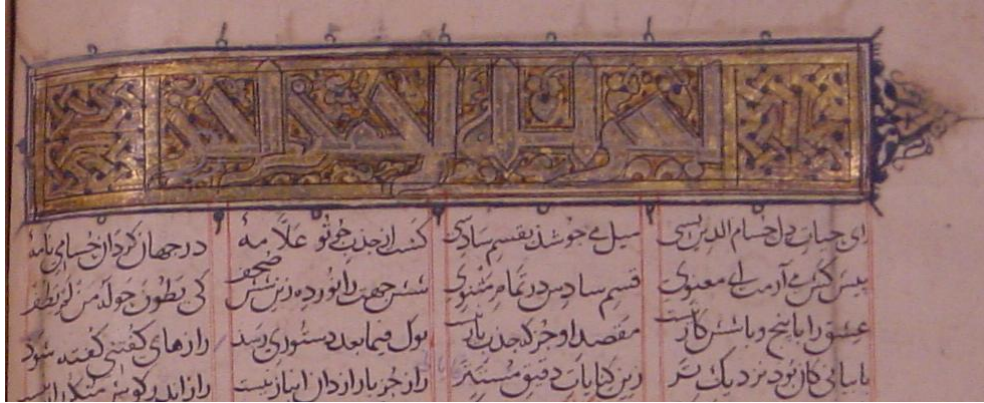 ای حیات دل حسام الدین بسی میل می جوشد بقسم سادسی گشت از جذب چو تو علامهٔ در جهان گردان حسامی نامهٔ
پیش کش می آرمت ای معنوی قسم سادس در تمام مثنوی شش جهت را نور ده زین شش صحف کی یطوف حوله من لم یطف
عشق را با پنج و با شش کار نیست مقصد او جز که جذب یار نیست بوک فیما بعد دستوری رسد رازهای گفتنی گفته شود
با بیانی کان بود نزدیک تر زین کنایات دقیق مستتر راز جز با رازدان انباز نیست راز اندر گوش منکر راز نیست